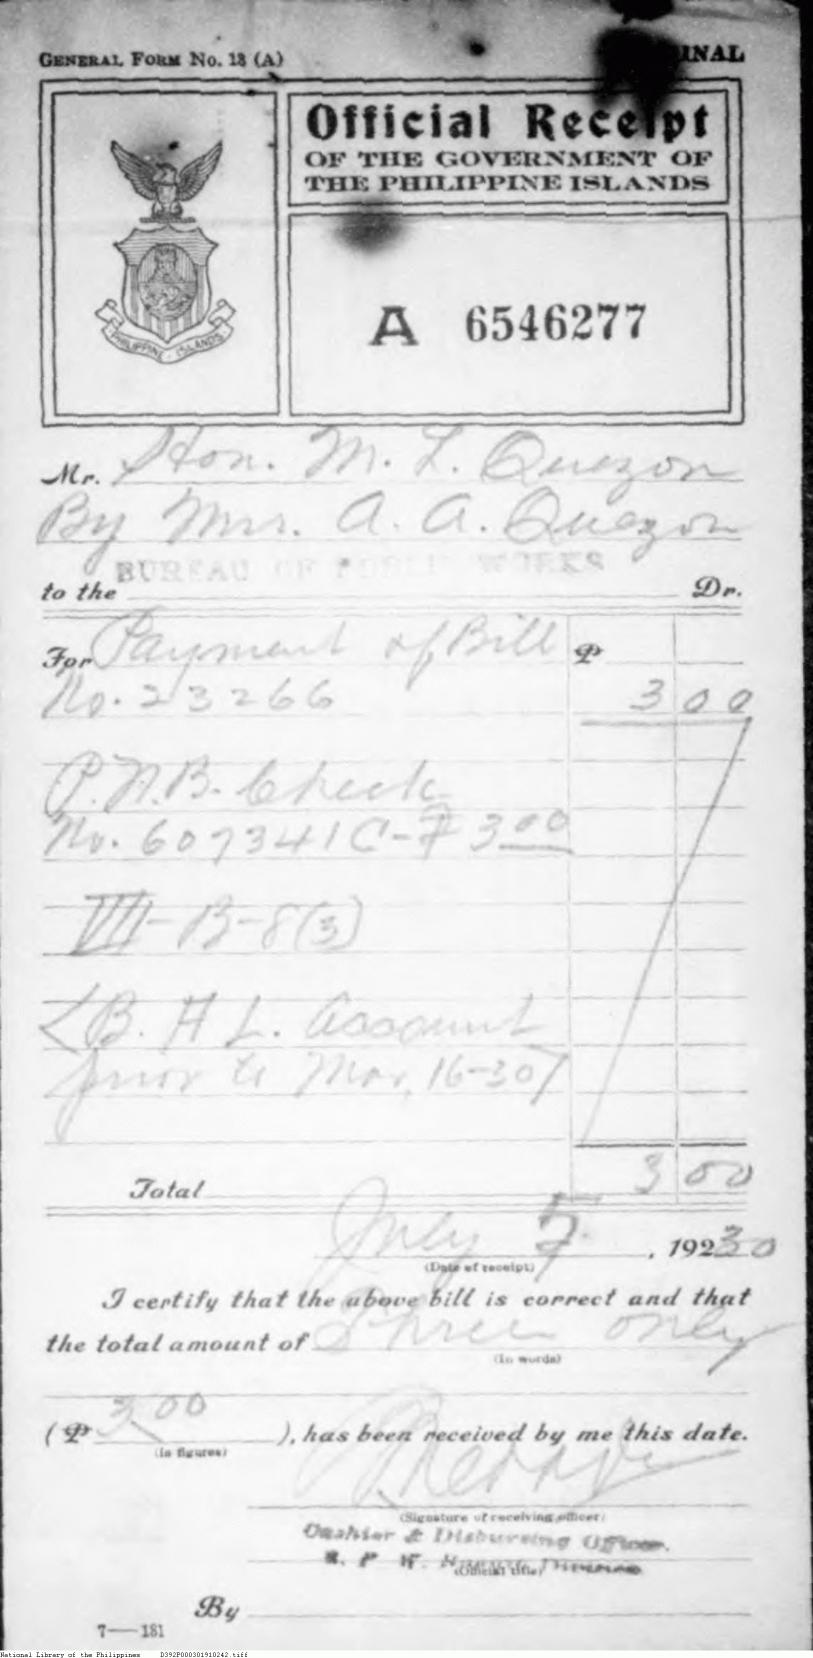 GENERAL FORM No. 13 (A)
INAL
Official Receipt
OF THE GOVERNMENT OF
THE PHILIPPINE ISLANDS
PHILIPPINE ISLANDS
A 6546277
Mr. Hon. M. L. Quezon
By Mrs. A. A. Quezon
BUREAU OF PUBLIC WORKS
to the Dr.
For Payment of Bill ₱
No. 23266 3 00
P.N.B. Check
No. 607341C-₱ 3 00
VII-B-8(3)
<B. H L. Account
prior to Mar, 16-30>
Total 3 00
July 7, 192 30
(Date of receipt)
I certify that the above bill is correct and that
the total amount of Three only
(In words)
(₱ 3 00 ), has been received by me this date.
(In figures)
(Signature of receiving officer)
Cashier & Disbursing Officer.
(Official title)
By
7—181
National Library of the Philippines D392P000301910242.tiff